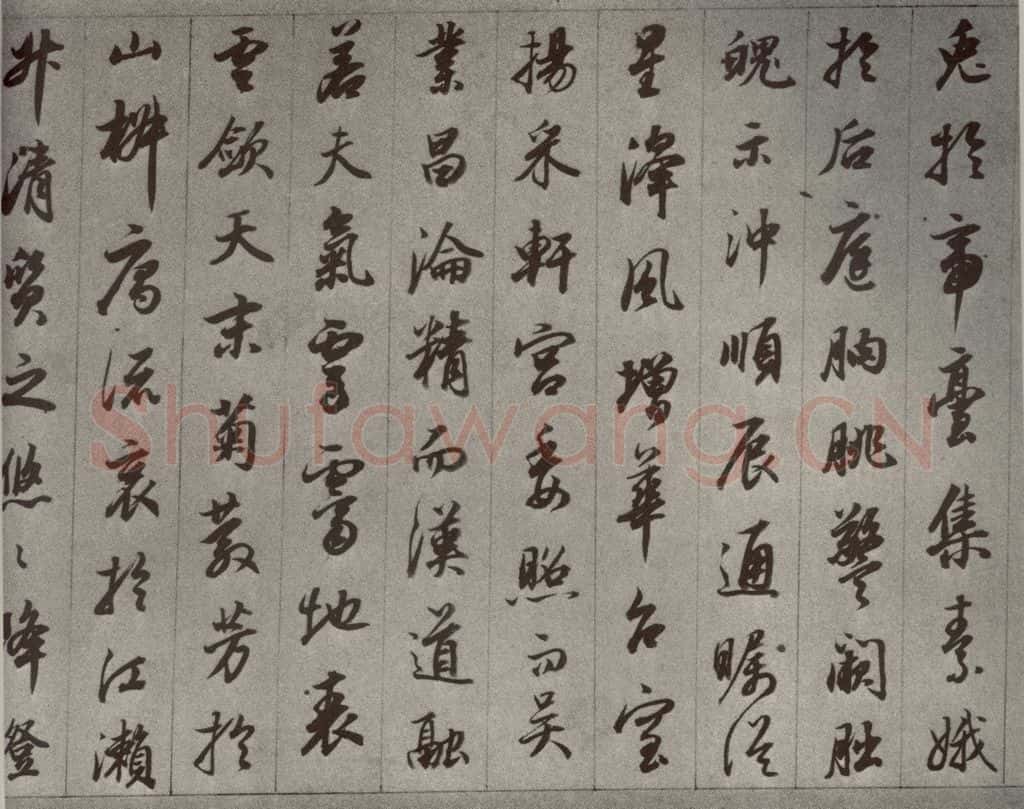 兔於帝臺集素娥
於后庭朒朓警闕朏
魄示沖順辰通矚從
星澤風增華台室
揚采軒宮委照而吳
業昌淪精而漢道融
若夫氣霽地表
雲斂天末菊散芳於
山椒鴈流哀於江瀨
升清質之悠々降澄
Shufawang.CN